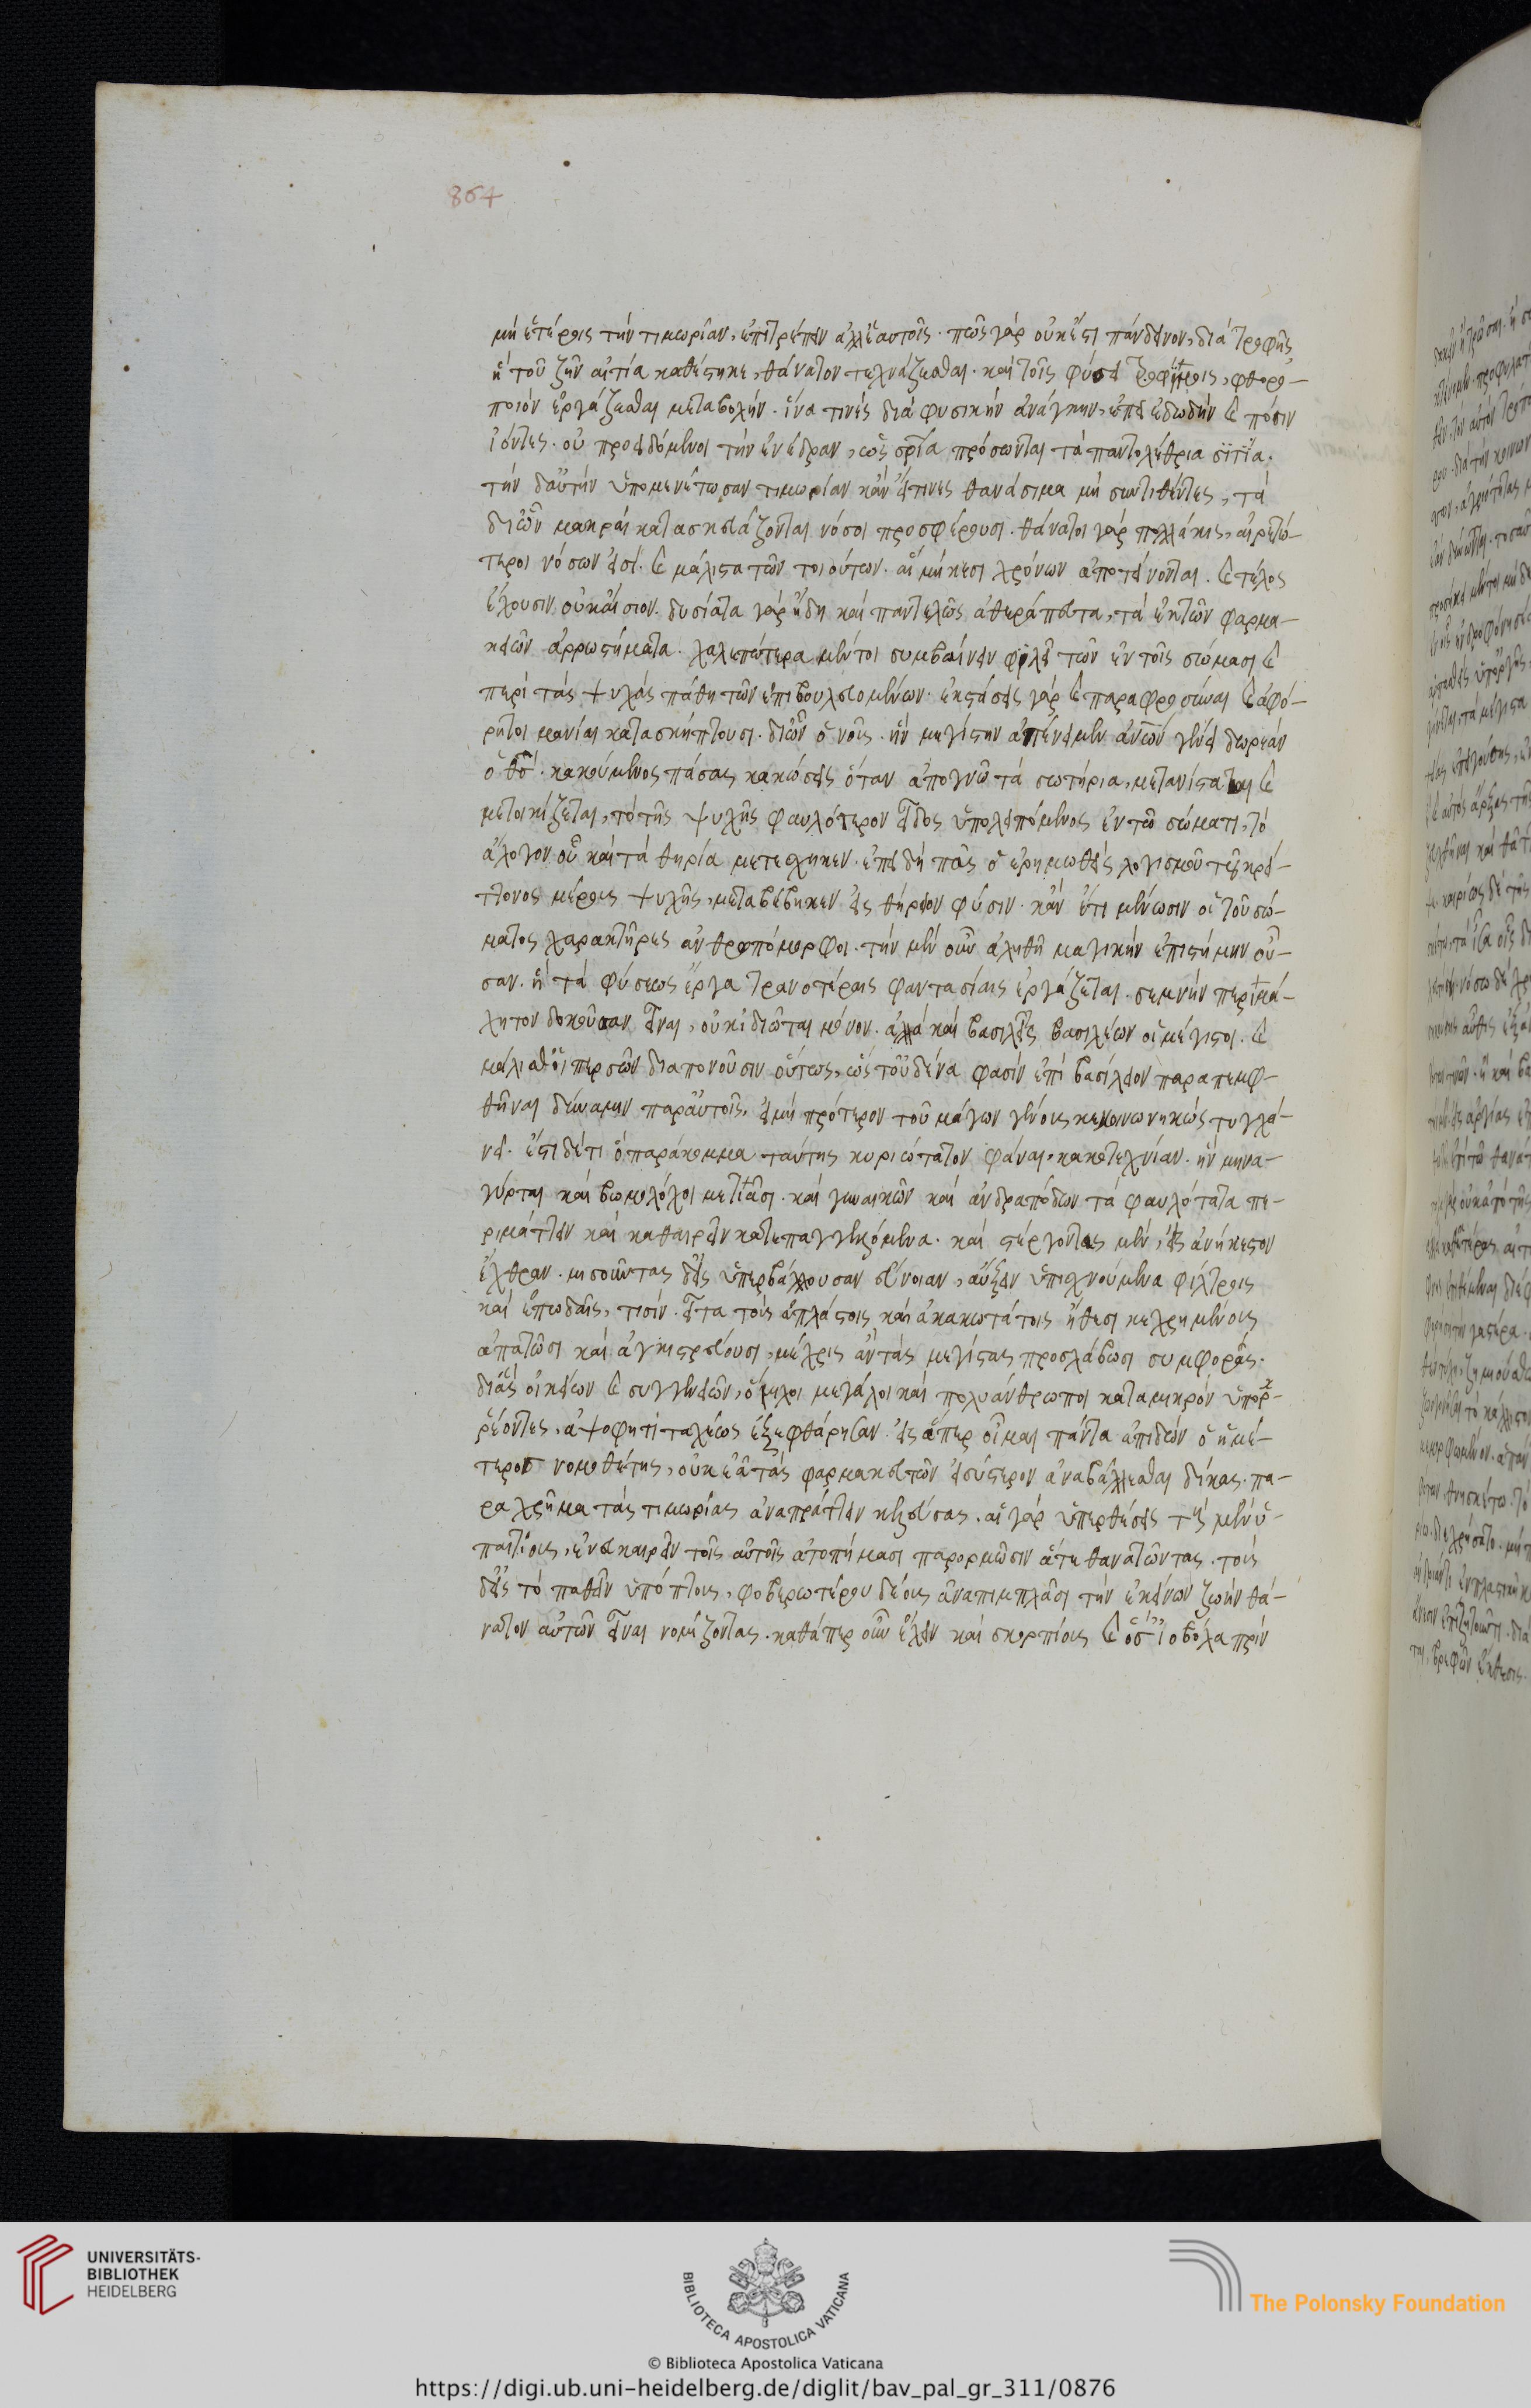 864
μὴ ἑτέροις τὴν τιμωρίαν, ἐπιτρέπειν ἀλλ' ἑαυτοῖς. πῶς γὰρ οὐκ ἔστι πάνδεινον, διὰ τροφῆς
ἣ τοῦ ζῆν αἰτία καθέστηκε, θάνατον τεχνάζεσθαι. καὶ τοῖς φύσει τροφίμοις, φθορο-
ποιὸν ἐργάζεσθαι μεταβολήν. ἵνα τινὲς διὰ φυσικὴν ἀνάγκην, ἐπ' ἐδωδὴν καὶ πόσιν
ἰόντες. οὐ προειδόμενοι τὴν ἐνέδραν, ὡς σωτήρια πρόσωνται τὰ παντολέθρια σιτία.
τὴν δ' αὐτὴν ὑπομενέτωσαν τιμωρίαν κἂν εἴ τινες θανάσιμα μὴ συντιθέντες, τὰ
δι' ὧν μακραὶ κατασκευάζονται νόσοι προσφέρουσι. θάνατοι γὰρ πολλάκις, αἱρετώ-
τεροι νόσων εἰσί. καὶ μάλιστα τῶν τοιούτων. αἳ μήκεσι χρόνων ἀποτείνονται. καὶ τέλος
ἔχουσιν οὐκ αἴσιον. δυσίατα γὰρ ἤδη καὶ παντελῶς ἀθεράπευτα, τὰ ἐκ τῶν φαρμα-
κειῶν ἀρρωστήματα. χαλεπώτερα μέντοι συμβαίνειν φιλεῖ τῶν ἐν τοῖς σώμασι καὶ
περὶ τὰς ψυχὰς πάθη τῶν ἐπιβουλευομένων. ἐκστάσεις γὰρ καὶ παραφροσύναι καὶ ἀφό-
ρητοι μανίαι κατασκήπτουσι. δι' ὧν ὁ νοῦς. ἣν μεγίστην ἀπένειμεν ἀνων γένει δωρεὰν
ὁ θσ. κακούμενος πάσας κακώσεις ὅταν ἀπογνῷ τὰ σωτήρια, μετανίσταται καὶ
μετοικίζεται, τὸ τῆς ψυχῆς φαυλότερον εἶδος ὑπολειπόμενος ἐν τῷ σώματι, τὸ
ἄλογον οὗ καὶ τὰ θηρία μετέσχηκεν. ἐπειδὴ πᾶς ὁ ἐρημωθεὶς λογισμοῦ τοῦ κρεί-
ττονος μέρους ψυχῆς, μεταβέβηκεν εἰς θήρειον φύσιν. κἂν ἔτι μένωσιν οἱ τοῦ σώ-
ματος χαρακτῆρες ἀνθρωπόμορφοι. τὴν μὲν οὖν ἀληθῆ μαγικὴν ἐπιστήμην οὖ-
σαν. ᾗ τὰ φύσεως ἔργα τρανοτέραις φαντασίαις ἐργάζεται. σεμνὴν περιμά-
χητον δοκοῦσαν εἶναι, οὐκ ἰδιῶται μόνον. ἀλλὰ καὶ βασιλεῖς βασιλέων οἱ μέγιστοι. καὶ
μάλισθ' οἱ περσῶν διαπονοῦσιν οὕτως, ὥστ' οὐδένα φασὶν ἐπὶ βασίλειον παραπεμφ-
θῆναι δύναμιν παρ' αὐτοῖς, εἰ μὴ πρότερον τοῦ μάγων γένους κεκοινωνηκὼς τυγχά-
νει. ἔστι δέ τι παράκομμα ταύτης κυριώτατον φάναι, κακοτεχνίαν. ἣν μηνα-
γύρται καὶ βωμολόχοι μετίασι. καὶ γυναικῶν καὶ ἀνδραπόδων τὰ φαυλότατα πε-
ριμάττειν καὶ καθαιρεῖν κατεπαγγελόμενα. καὶ στέργοντας μὲν, εἰς ἀνήκεστον
ἔχθραν. μισοῦντας δ' εἰς ὑπερβάλλουσαν εὔνοιαν, αὔξειν ὑπισχνούμενα φίλτροις
καὶ ἐπῳδαῖς, τισίν. εἶτα τοὺς ἀπλάστοις καὶ ἀκακωτάτοις ἤθεσι κεχρημένους
ἀπατῶσι καὶ ἀγκιστρεύουσι, μέχρις ἂν τὰς μεγίστας προσλάβωσι συμφοράς.
δι' ἃς οἰκείων καὶ συγγενῶν, ὅμιλοι μεγάλοι καὶ πολυάνθρωποι κατὰ μικρὸν ὑπορ-
ρέοντες, ἀψοφητὶ ταχέως ἐξεφθάρησαν. εἰς ἅπερ οἶμαι πάντα ἀπιδὼν ὁ ἡμέ-
τερος νομοθέτης, οὐκ εἴα τὰς φαρμακευτῶν εἰσύστερον ἀναβάλλεσθαι δίκας. πα-
ραχρῆμα τὰς τιμωρίας ἀναπράττειν κελεύσας. αἱ γὰρ ὑπερθέσεις τοὺς μὲν ὑ-
παιτίους, ἐνευκαιρεῖν τοῖς αὐτοῖς ἀτοπήμασι παρορμῶσιν ἅτε θανατῶντας. τοὺς
δ' εἰς τὸ παθεῖν ὑπόπτους, φοβερωτέρου δέους ἀναπιμπλᾶσι τὴν ἐκείνων ζωὴν θά-
νατον αὐτῶν εἶναι νομίζοντας. καθάπερ οὖν ἔχειν καὶ σκορπίους καὶ ὅσ' ἰοβόλα πρὶν
UNIVERSITÄTS-
BIBLIOTHEK
HEIDELBERG
BIBLIOTECA APOSTOLICA VATICANA
The Polonsky Foundation
© Biblioteca Apostolica Vaticana
https://digi.ub.uni-heidelberg.de/diglit/bav_pal_gr_311/0876